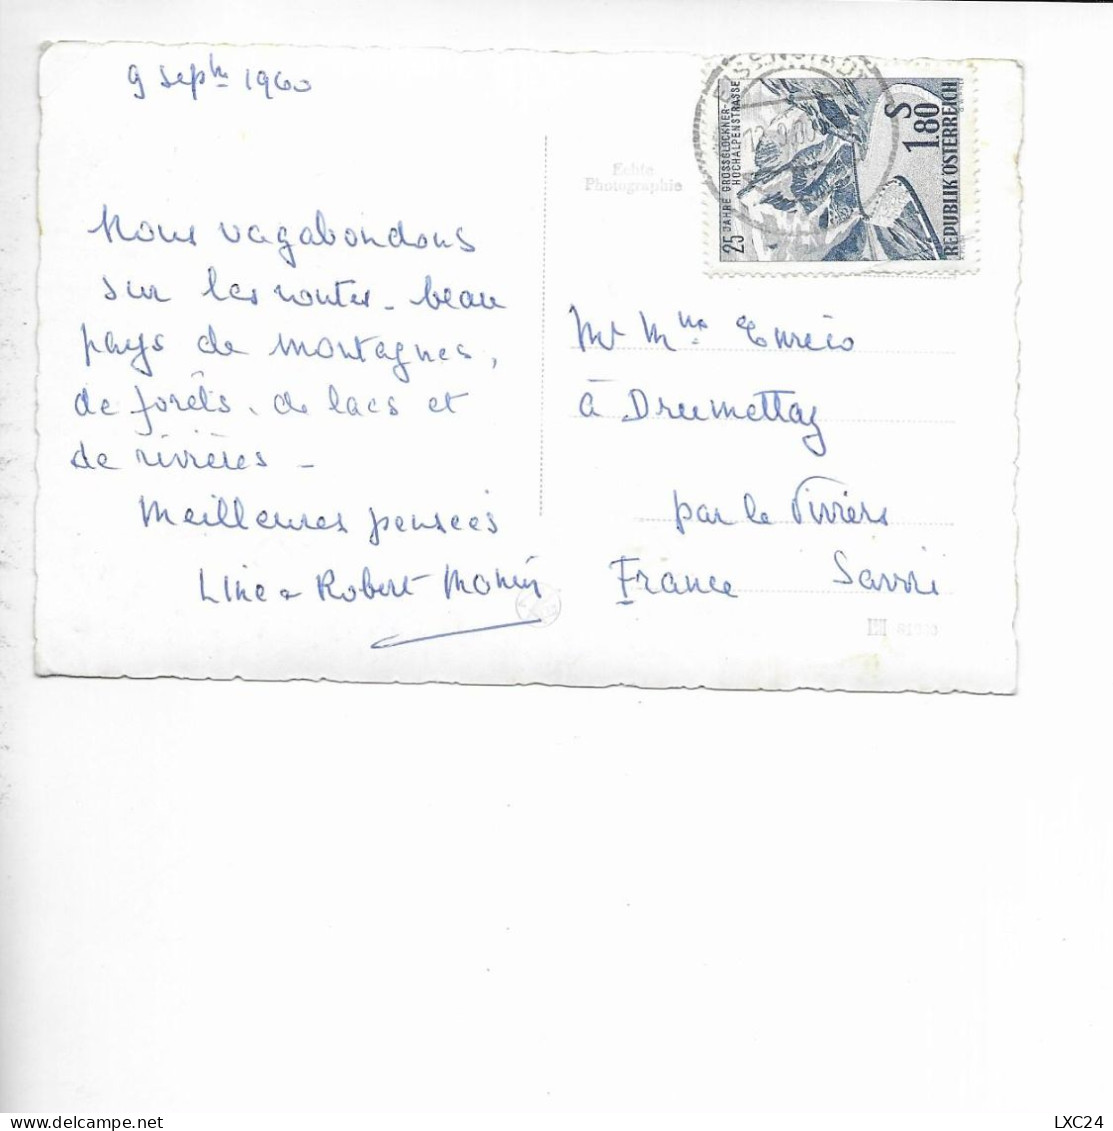 9 septbre 1960
Nous vagabondons
sur les routes - beau
pays de montagnes,
de forêts, de lacs et
de rivières -
Meilleures pensées
Line & Robert Monin
Echte
Photographie
EISENSTADT
25 JAHRE GROSSGLOCKNER-
HOCHALPENSTRASSE
S 1.80
REPUBLIK ÖSTERREICH
Mr Mme Enrico
à Drumettaz
par le Viviers
France Savoie
LXC24